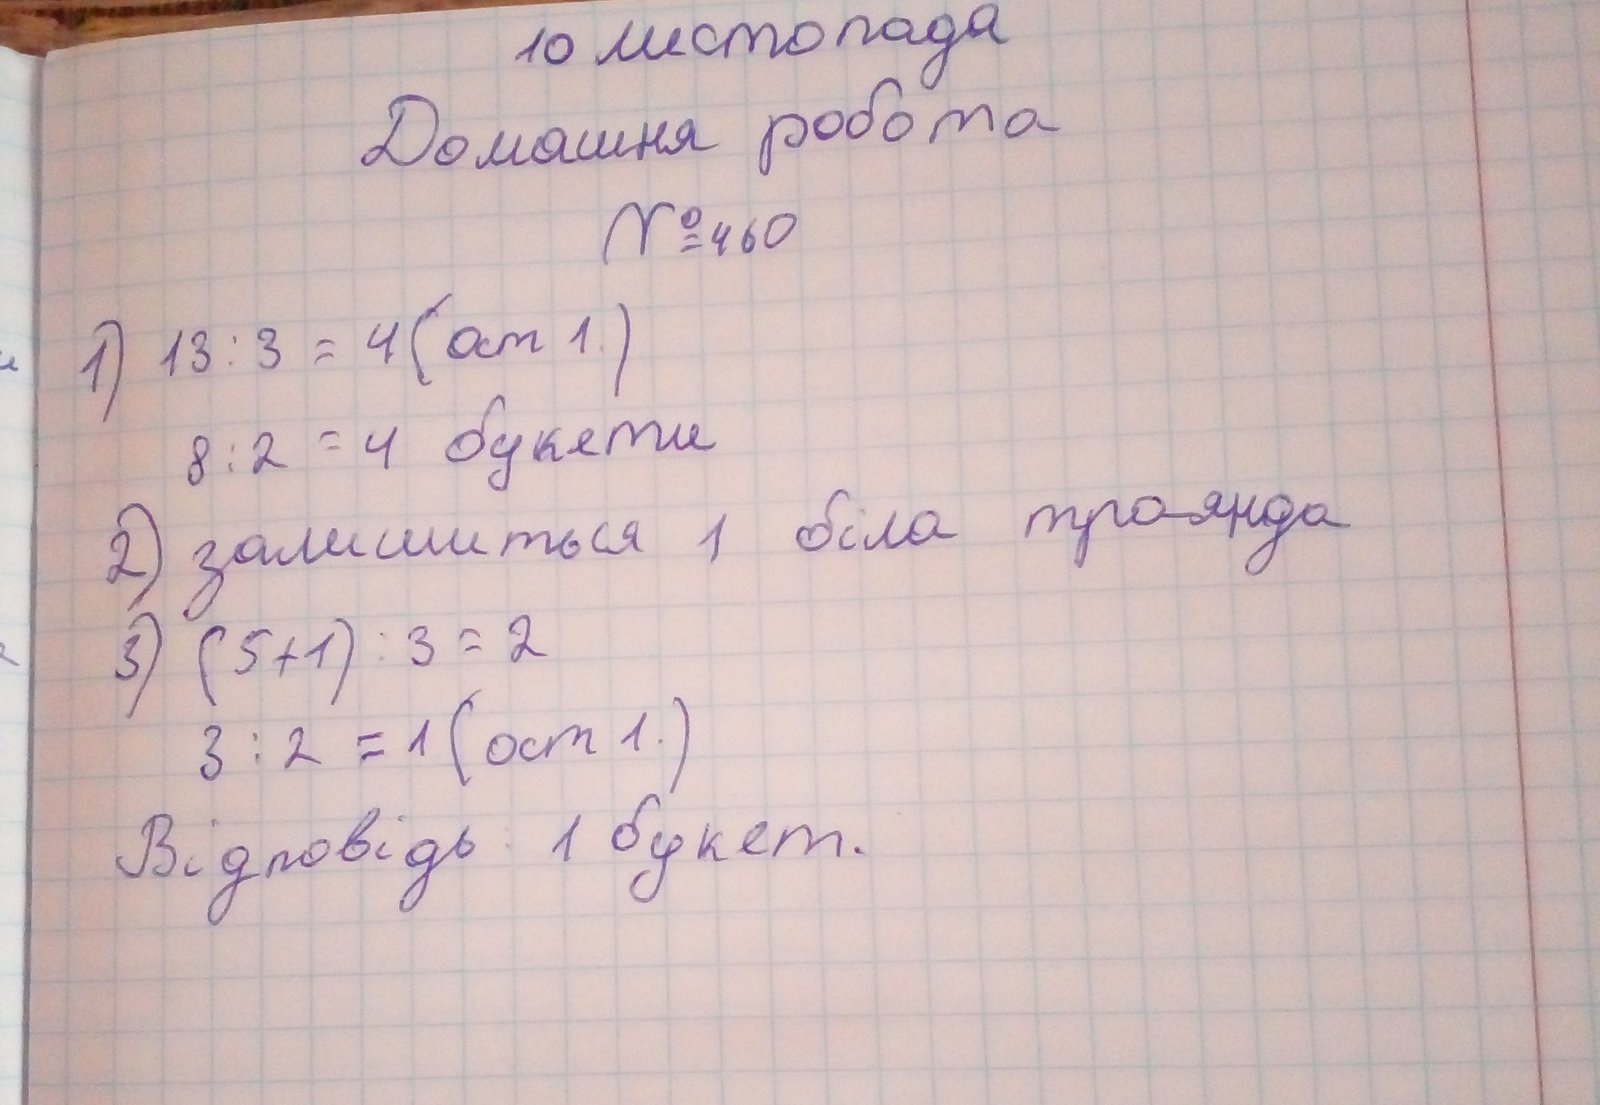 10 листопада
Домашня робота
№460
1) 13:3 = 4 (ост 1.)
8:2 = 4 букети
2) залишиться 1 біла троянда
3) (5+1):3 = 2
3:2 = 1 (ост 1.)
Відповідь: 1 букет.